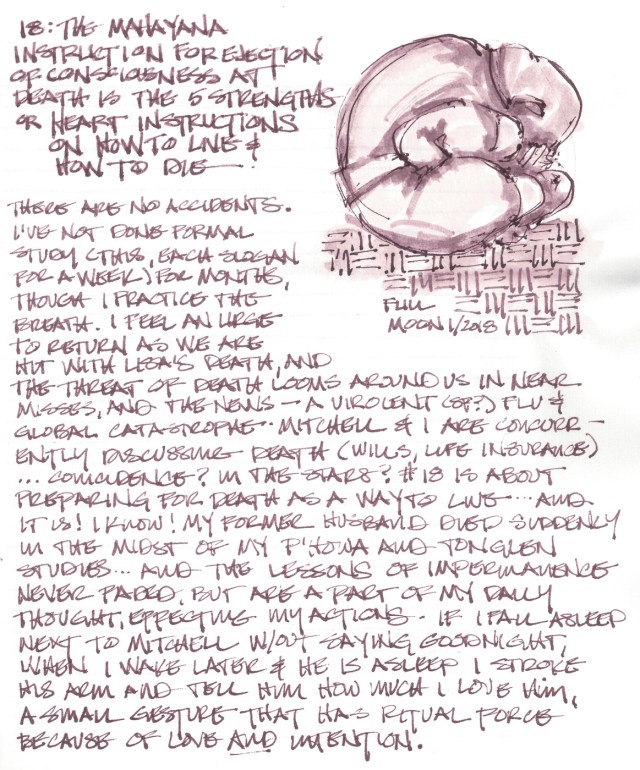 18: THE MAHAYANA
INSTRUCTION FOR EJECTION
OF CONSCIOUSNESS AT
DEATH IS THE 5 STRENGTHS
OR HEART INSTRUCTIONS
ON HOW TO LIVE &
HOW TO DIE
THERE ARE NO ACCIDENTS.
I'VE NOT DONE FORMAL
STUDY (THIS, EACH SLOGAN
FOR A WEEK) FOR MONTHS,
THOUGH I PRACTICE THE
BREATH. I FEEL AN URGE
TO RETURN AS WE ARE
HIT WITH LISA'S DEATH, AND
THE THREAT OF DEATH LOOMS AROUND US IN NEAR
MISSES, AND THE NEWS – A VIROLENT (SP?) FLU &
GLOBAL CATASTROPHE. MITCHELL & I ARE CONCURR-
ENTLY DISCUSSING DEATH (WILLS, LIFE INSURANCE)
... COINCIDENCE? IN THE STARS? #18 IS ABOUT
PREPARING FOR DEATH AS A WAY TO LIVE ... AND
IT IS! I KNOW! MY FORMER HUSBAND DIED SUDDENLY
IN THE MIDST OF MY P'HOWA AND TONGLEN
STUDIES ... AND THE LESSONS OF IMPERMANENCE
NEVER FADED, BUT ARE A PART OF MY DAILY
THOUGHT, EFFECTING MY ACTIONS. IF I FALL ASLEEP
NEXT TO MITCHELL W/OUT SAYING GOODNIGHT,
WHEN I WAKE LATER & HE IS ASLEEP I STROKE
HIS ARM AND TELL HIM HOW MUCH I LOVE HIM,
A SMALL GESTURE THAT HAS RITUAL FORCE
BECAUSE OF LOVE AND INTENTION.
FULL
MOON 1/2018